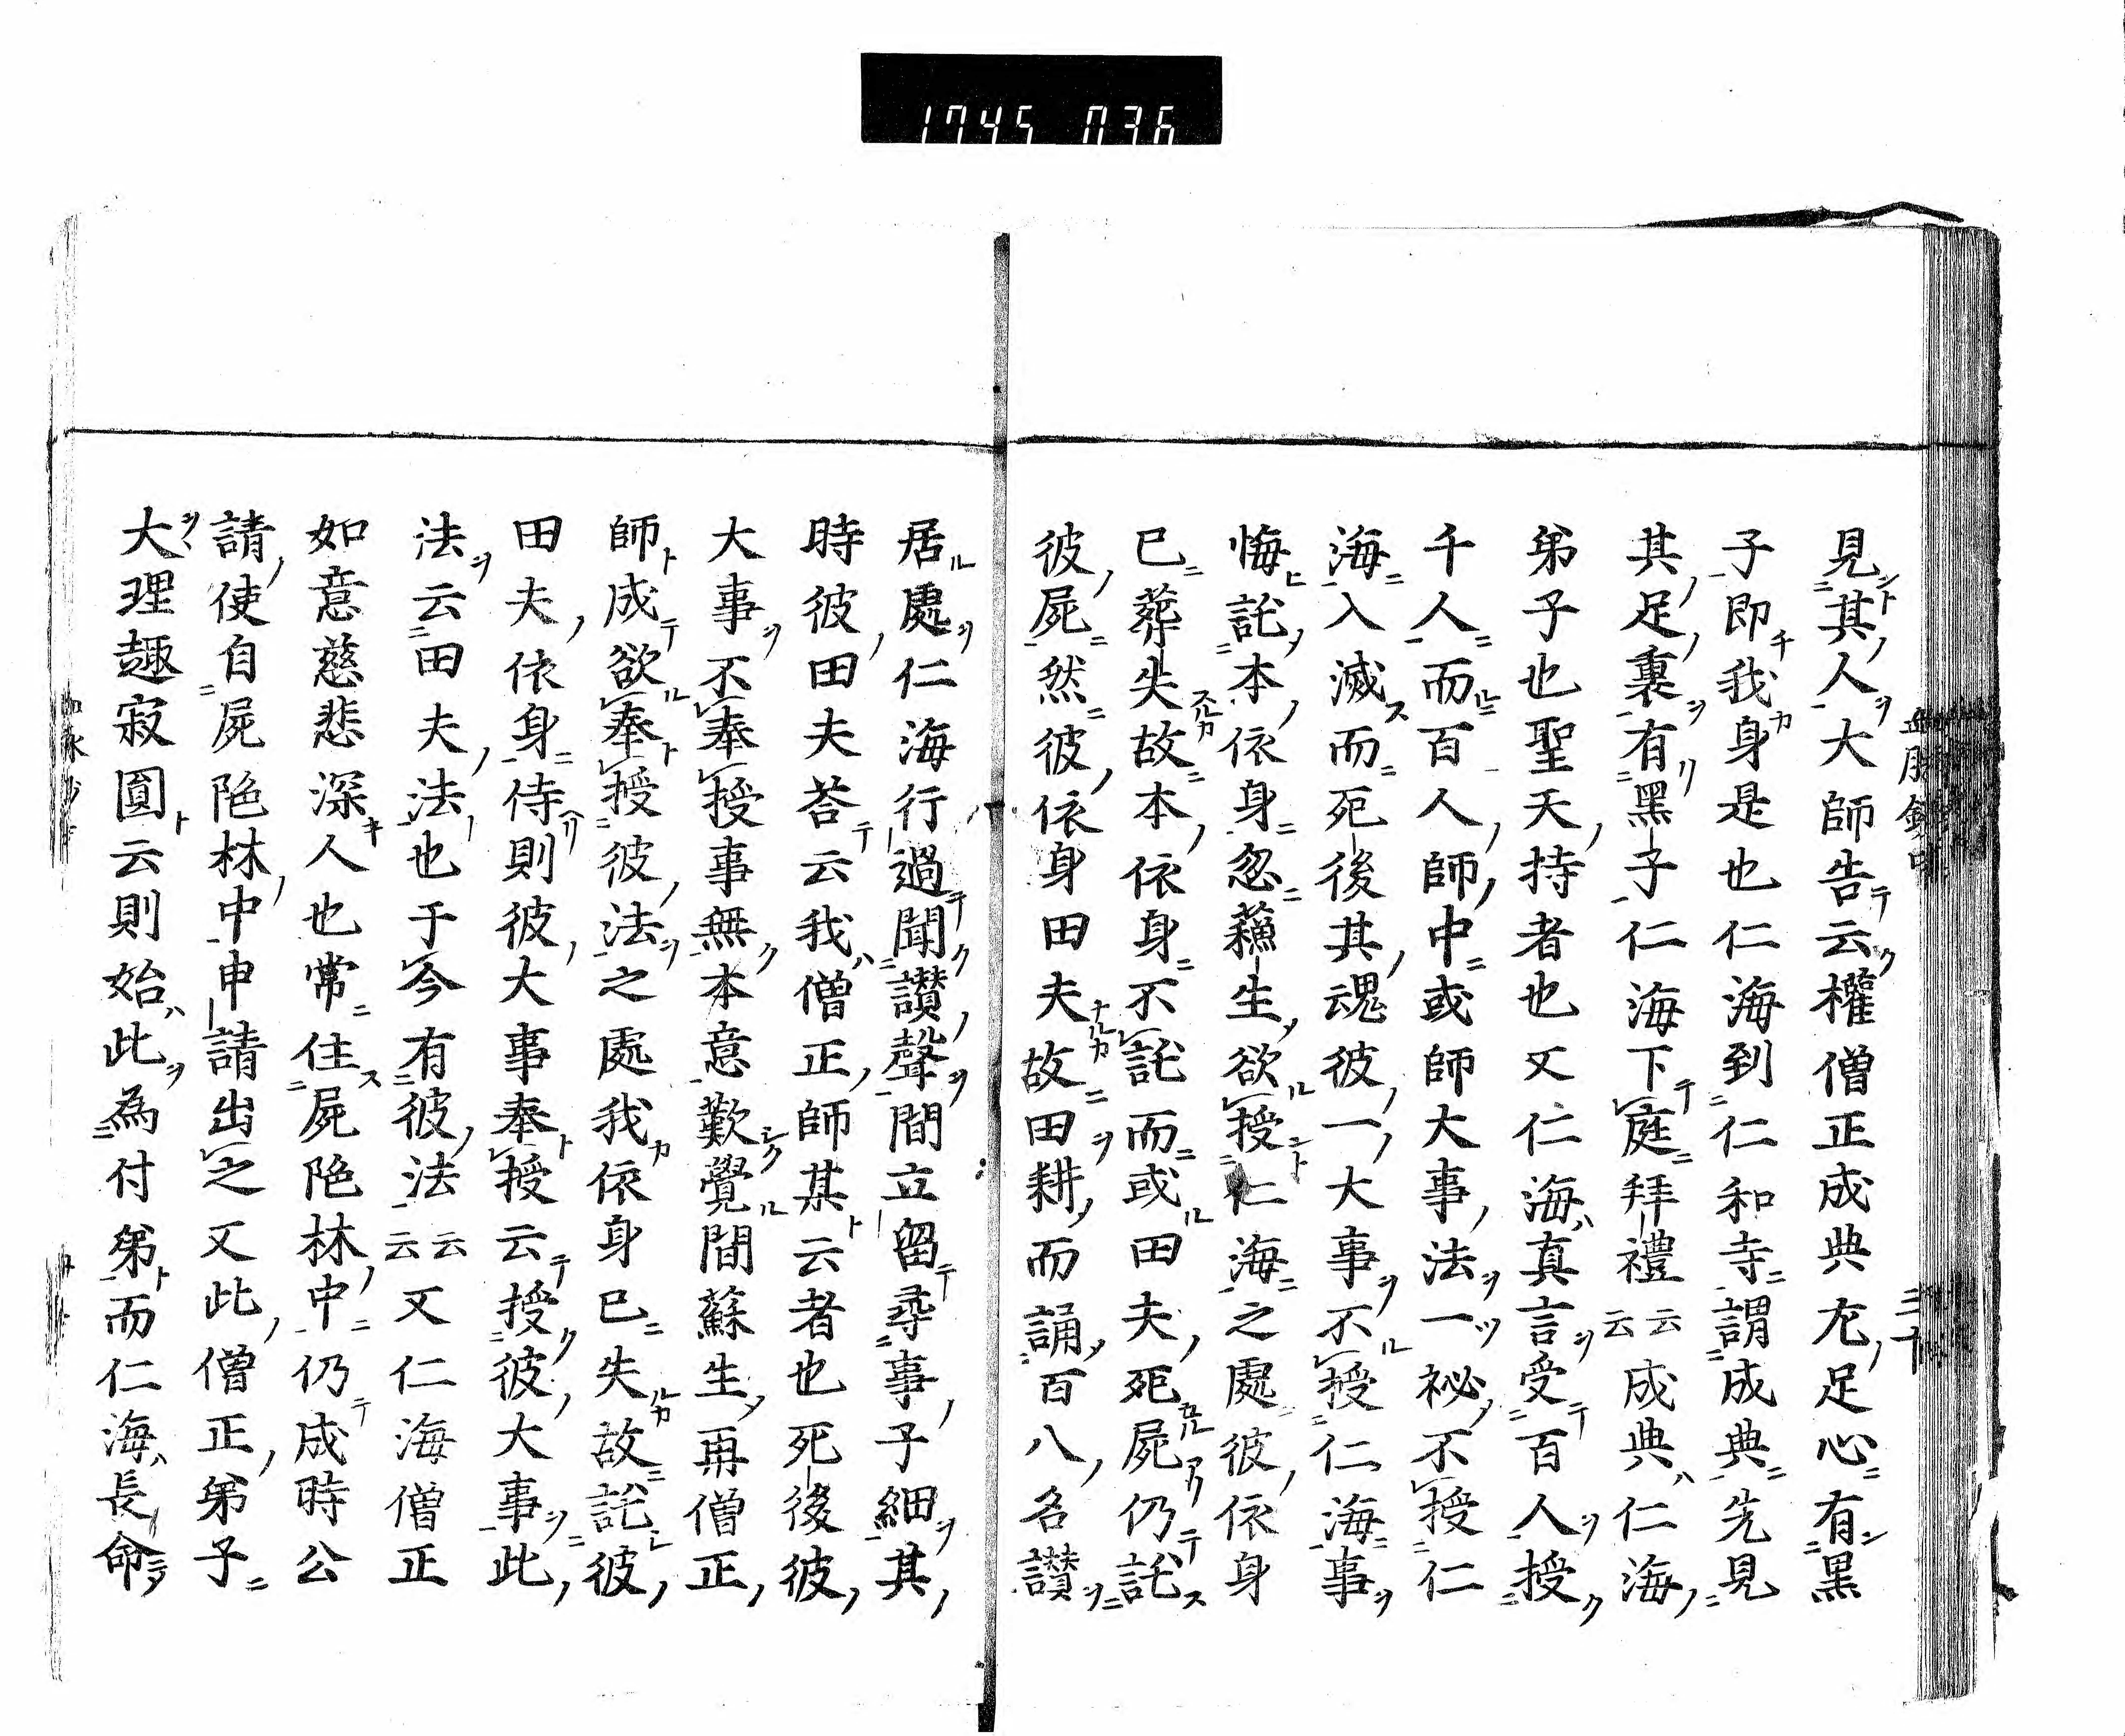 1745 036
見其人大師告云權僧正成典尤足心有黑
子即我身是也仁海到仁和寺謂成典先見
其足裏有黑子仁海下庭拜禮云云成典仁海
弟子也聖天持者也又仁海真言受百人授
千人而百人師中或師大事法一祕不授仁
海入滅而死後其魂彼一大事不授仁海事
悔託本依身忽蘓生欲授仁海之處彼依身
已葬失故本依身不託而或田夫死屍仍託
彼屍然彼依身田夫故田耕而誦百八名讃
居處仁海行過聞讃聲間立留尋事子細其
時彼田夫荅云我僧正師某云者也死後彼
大事不奉授事無本意歎覺間蘇生再僧正
師成欲奉授彼法之處我依身已失故託彼
田夫依身侍則彼大事奉授云授彼大事此
法云田夫法也于今有彼法云云又仁海僧正
如意慈悲深人也常住屍陁林中仍成時公
請使自屍陁林中申請出之又此僧正弟子
大理趣寂圓云則始此為付弟而仁海長命